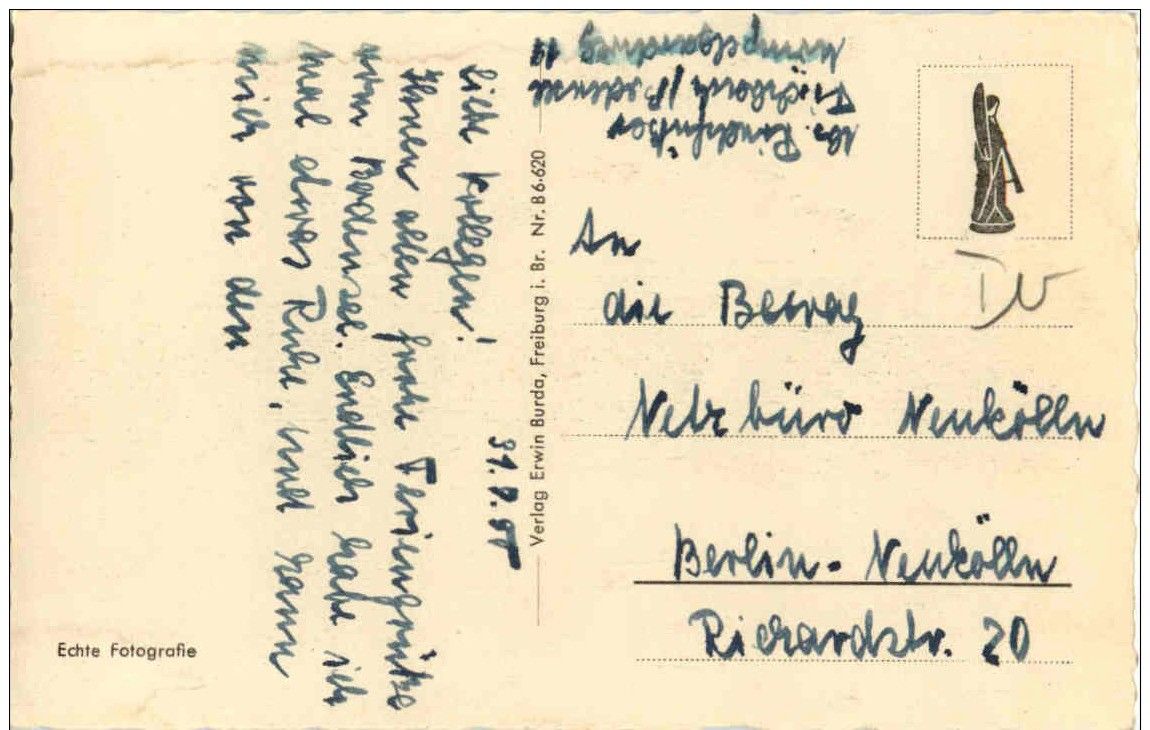 31.8.55
Liebe Kollegen!
Ihnen allen frohe Feriengrüße
vom Bodensee. Endlich habe ich
mal etwas Ruhe, und kann
mich von den
Echte Fotografie
Verlag Erwin Burda, Freiburg i. Br. Nr. B 6·620
Abs.
/ Bodensee
19
An
die Bewag
Netzbüro Neukölln
Berlin-Neukölln
Richardstr. 20